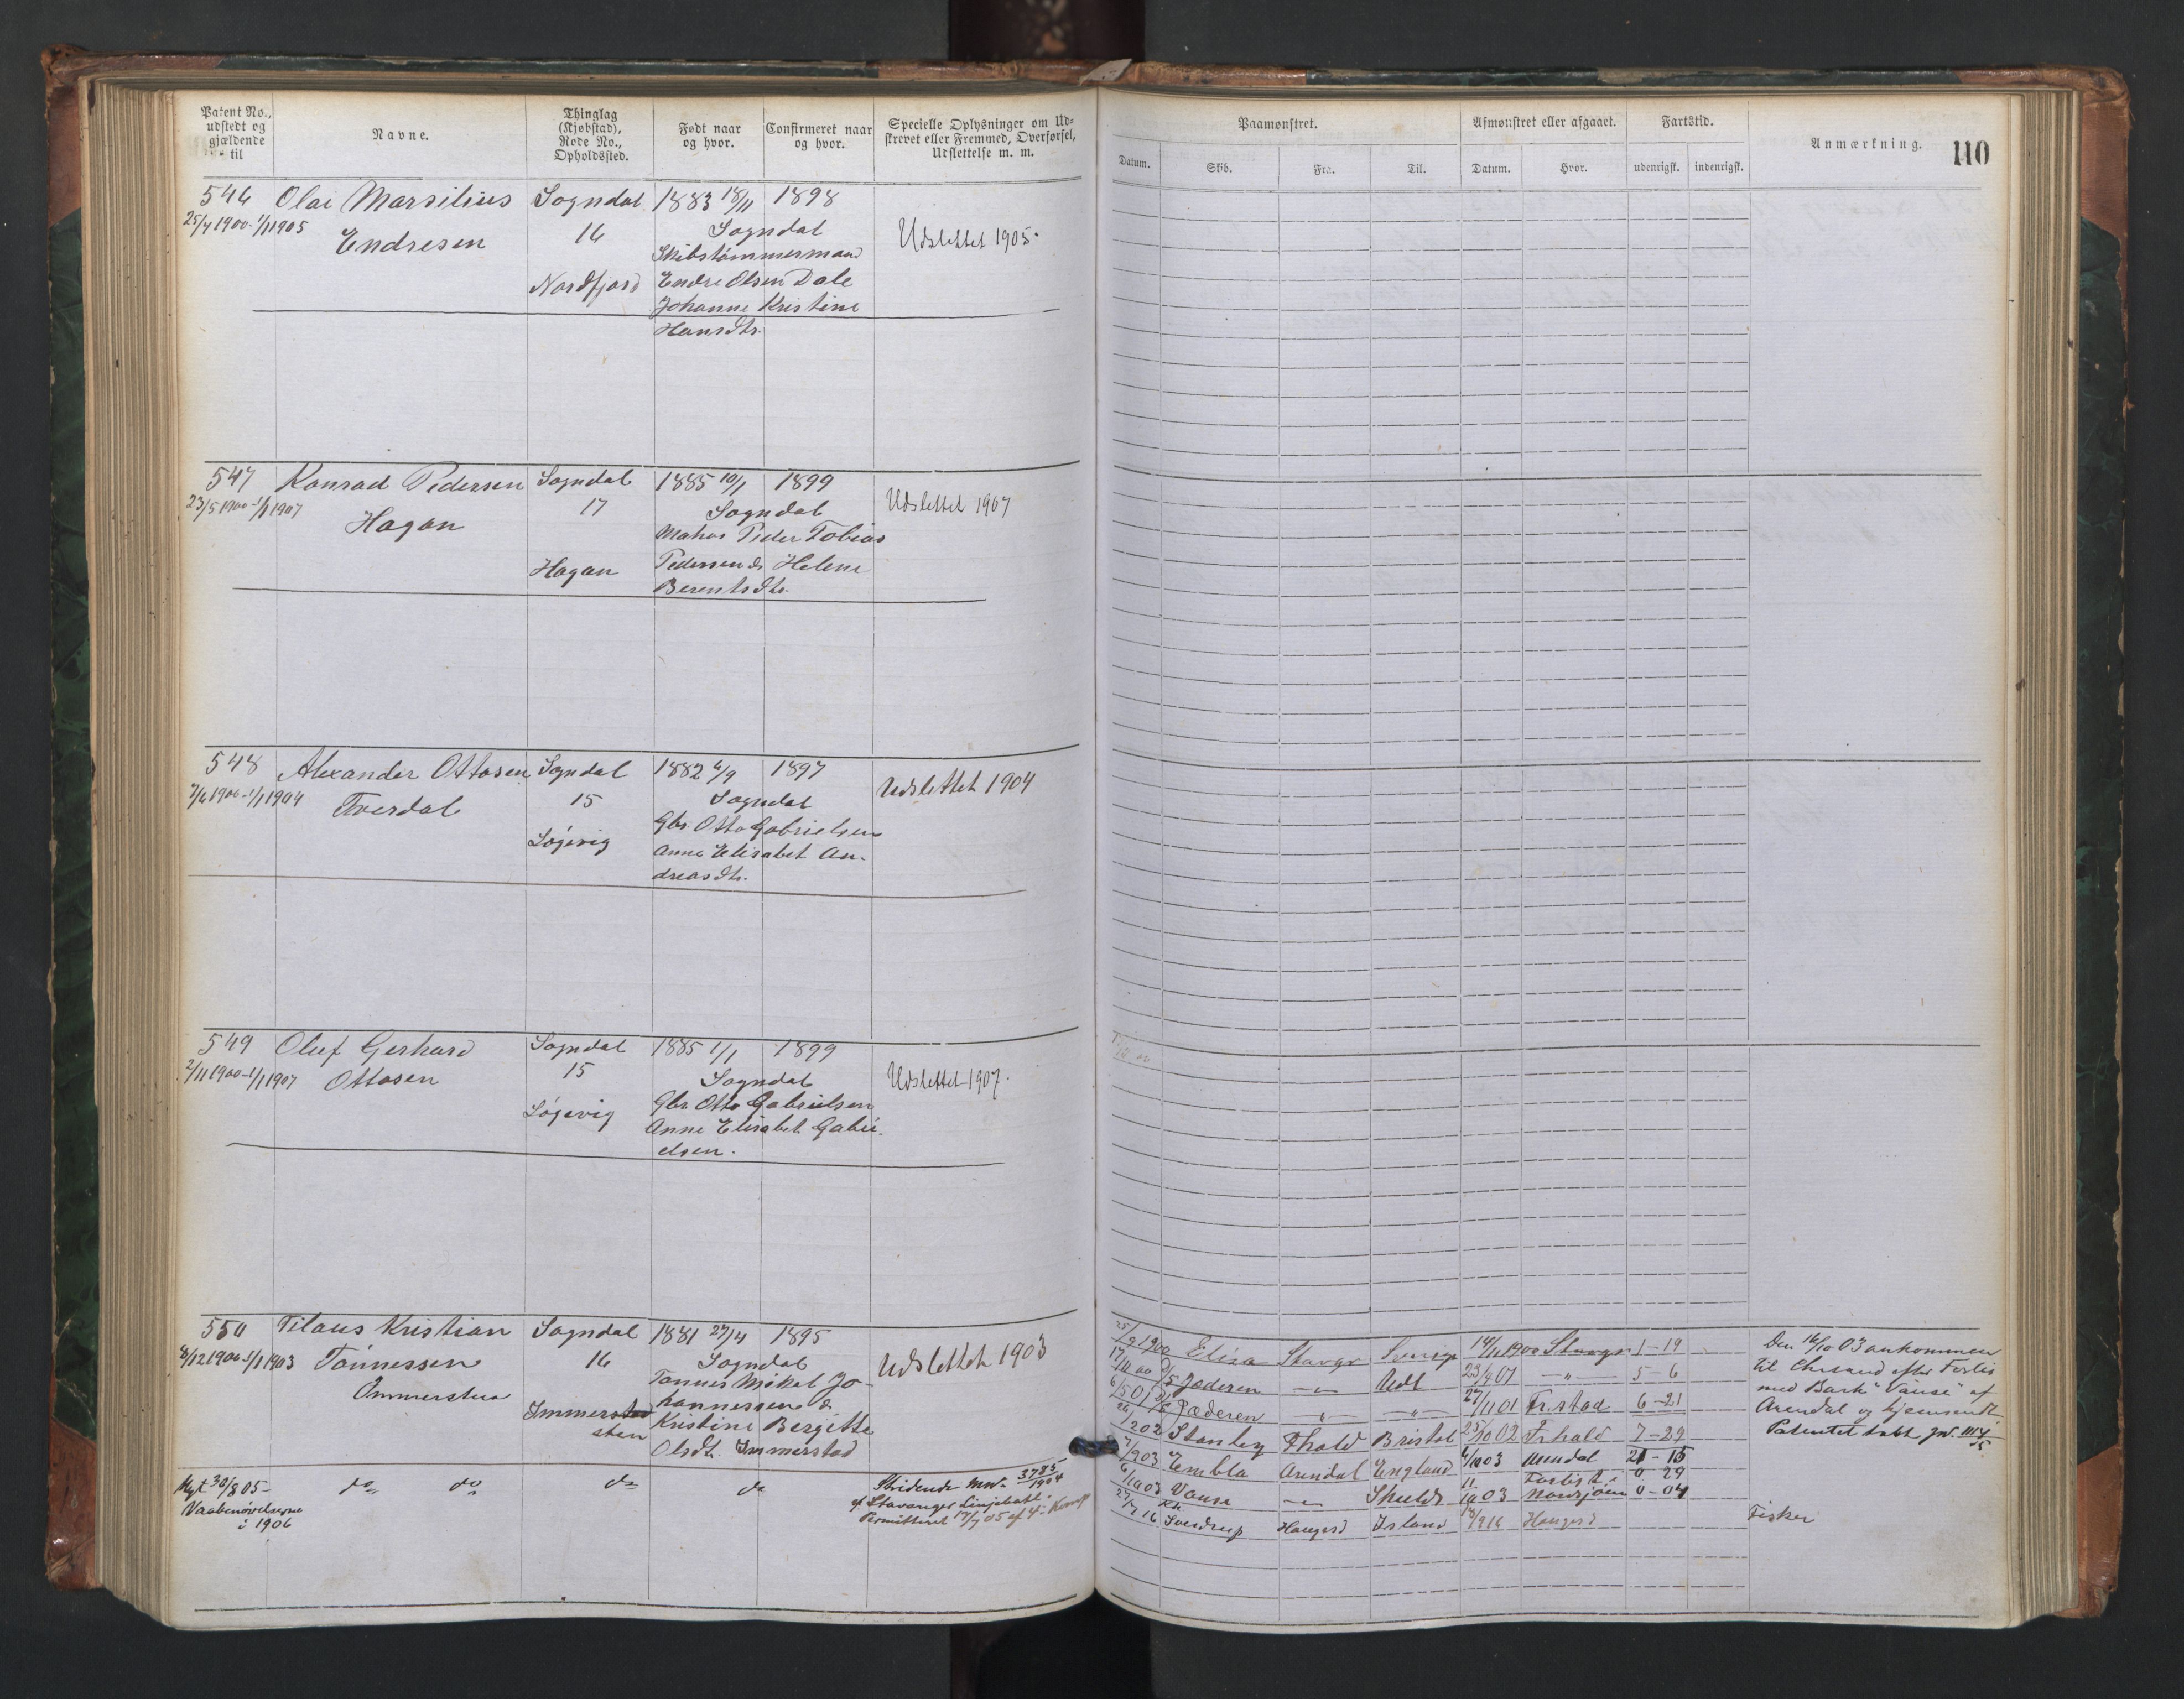 Patent No., udstedt og gjældende til
Navne.
Thinglag (Kjøbstad), Rode No., Opholdssted.
Født naar og hvor.
Confirmeret naar og hvor.
Specielle Oplysninger om Udskrevet eller Fremmed, Overførsel, Udslettelse m. m.
Paamønstret.
Afmønstret eller afgaaet.
Fartstid.
Anmærkning.
110
Datum.
Skib.
Fra.
Til.
Datum.
Hvor.
udenrigsk.
indenrigsk.
546 Olai Marsilius Sogndal 1883 18/11 1898
25/4 1900-1/1 1905 Endresen 16 Sogndal Udslettet 1905.
Skibstømmermand
Nordfjord Endre Olsen Dale
Johanne Kristine
Hansdtr.
547 Konrad Pedersen Sogndal 1885 10/1 1899
23/5 1900-1/1 1907 Hagan 17 Sogndal Udslettet 1907
Peder Tobias
Hagan Pedersen & Helene
Berentsdtr.
548 Alexander Ottosen Sogndal 1882 4/9 1897
7/6 1900-1/1 1904 Tverdal 15 Sogndal Udslettet 1904
Løgevig Gbr. Otto Gabrielsen
Anne Elisabet An-
dreasdtr.
549 Oluf Gerhard Sogndal 1885 1/1 1899
2/11 1900-1/1 1907 Ottosen 15 Sogndal Udslettet 1907.
Løgevig Gbr. Otto Gabrielsen
Anne Elisabet Gabri-
elsen.
550 Tilaus Kristian Sogndal 1881 27/4 1895
8/12 1900-1/1 1903 Tønnessen 16 Sogndal Udslettet 1903
Ommerstua Tønnes Mikal Jo-
hannessen &
Immerstad
sten Kristine Bergitte
Olsdt. Immerstad
Nyt 30/8 05- do do do do Stridende Mnr. 3785/1904
Vaabenøvelserne af Stavanger Linjebatl.
i 1906 Permitteret 17/7 05 af 4. Komp
25/9 1900 Elisa Stavgr 14/11 1900 Stavgr 1-19
17/11 00 Jæderen -"- Udl 23/4 01 -"- 5-6
6/5 01 Jæderen -"- -"- 27/11 01 Fr.stad 6-21
26/2 02 Stanley Fhald Bristol 25/10 02 Frhald 7-29
2/2 03 Embla Arendal England 4/10 03 Arendal
6/10 03 Vanse -"- Shields 11/10 03 Forlist i Nordsjøen
27/7 16 Sverdrup Haugesd Island 18/9 16 Haugesd Fisker
Den 16/10 03 ankommen
til Chrsand efter Forlis
med Bark "Vanse" af
Arendal og hjemsendt.
Patentet tabt